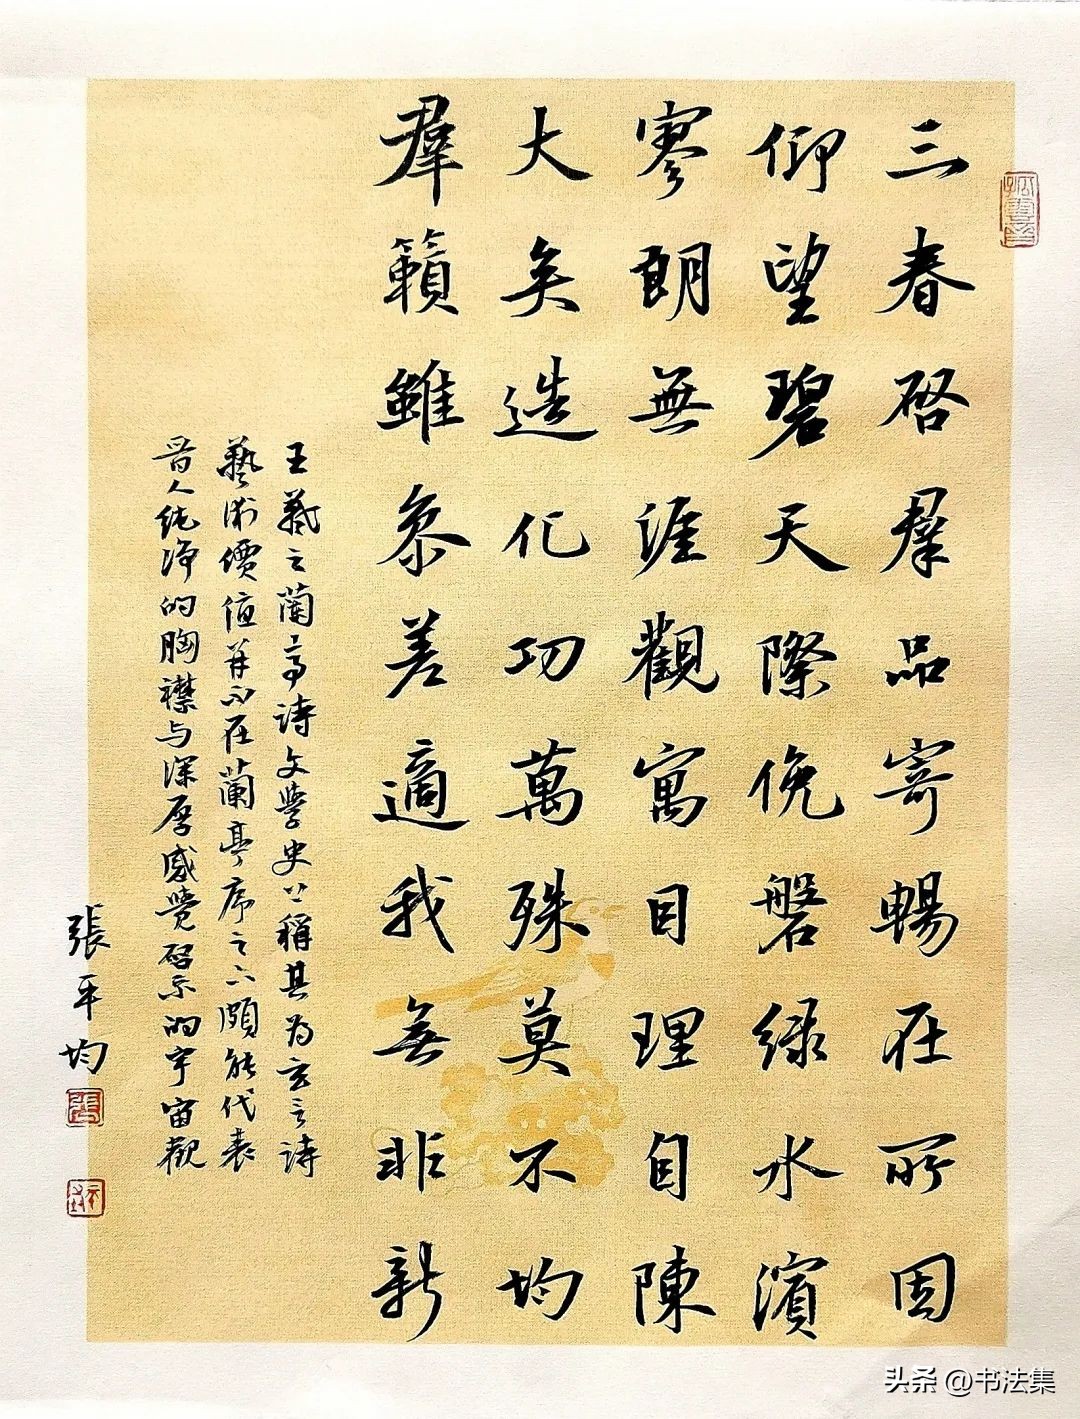 三春启羣品寄暢在所因
仰望碧天際俛磐绿水濱
寥朗無涯觀寓目理自陳
大矣造化功萬殊莫不均
羣籟雖参差適我無非新
王羲之蘭亭诗文學史上稱其为玄言诗
藝術價值并不在蘭亭序之下颇能代表
晋人纯净的胸襟与深厚感覺啓示的宇宙觀
張平均
頭条 @书法集